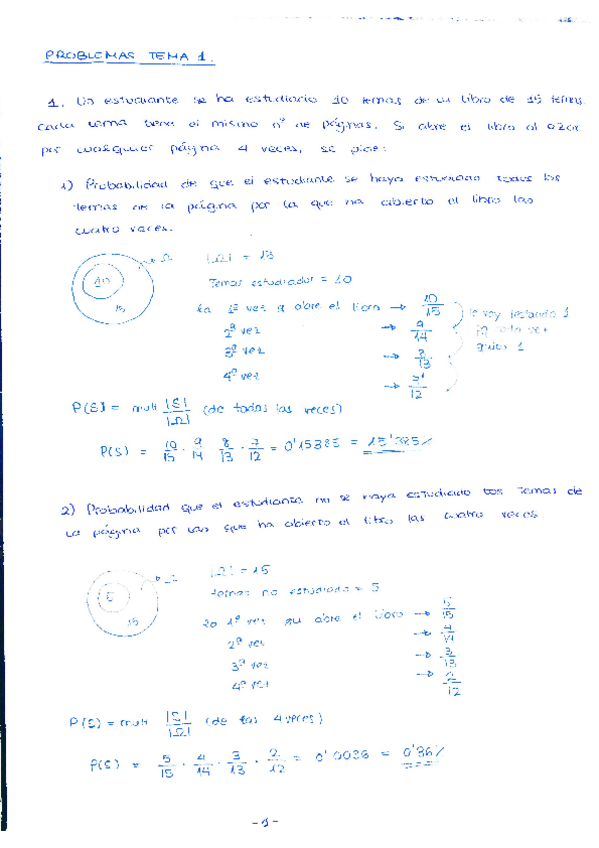 PROBLEMAS TEMA 1.
1. Un estudiante se ha estudiado 10 temas de un libro de 15 temas.
Cada tema tiene el mismo nº de páginas. Si abre el libro al azar
por cualquier página 4 veces, se pide:
1) Probabilidad de que el estudiante se haya estudiado todos los
temas de la página por la que ha abierto el libro las
cuatro veces.
Ω |Ω| = 15
10 15
Temas estudiados = 10
La 1ª vez q abre el libro → 10/15
2ª vez → 9/14
3ª vez → 8/13
4ª vez → 7/12
le voy restando 1
cada vez
1
P(S) = mult |S|/|Ω| (de todas las veces)
P(S) = 10/15 · 9/14 · 8/13 · 7/12 = 0'15385 = 15'385%
2) Probabilidad que el estudiante no se haya estudiado los temas de
la página por las que ha abierto el libro las cuatro veces
Ω |Ω| = 15
5 15
temas no estudiado = 5
La 1ª vez qu abre el libro → 5/15
2ª vez → 4/14
3ª vez → 3/13
4ª vez → 2/12
P(S) = mult |S|/|Ω| (de las 4 veces)
P(S) = 5/15 · 4/14 · 3/13 · 2/12 = 0'0036 = 0'36%
-1-